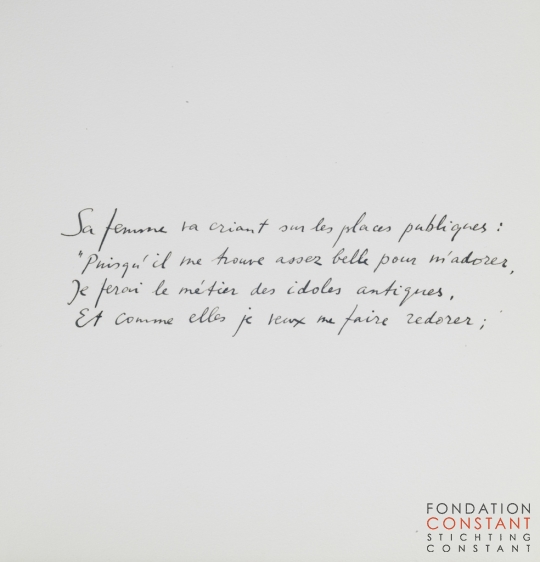 Sa femme va criant sur les places publiques :
"Puisqu'il me trouve assez belle pour m'adorer,
Je ferai le métier des idoles antiques,
Et comme elles je veux me faire redorer ;
FONDATION
CONSTANT
STICHTING
CONSTANT